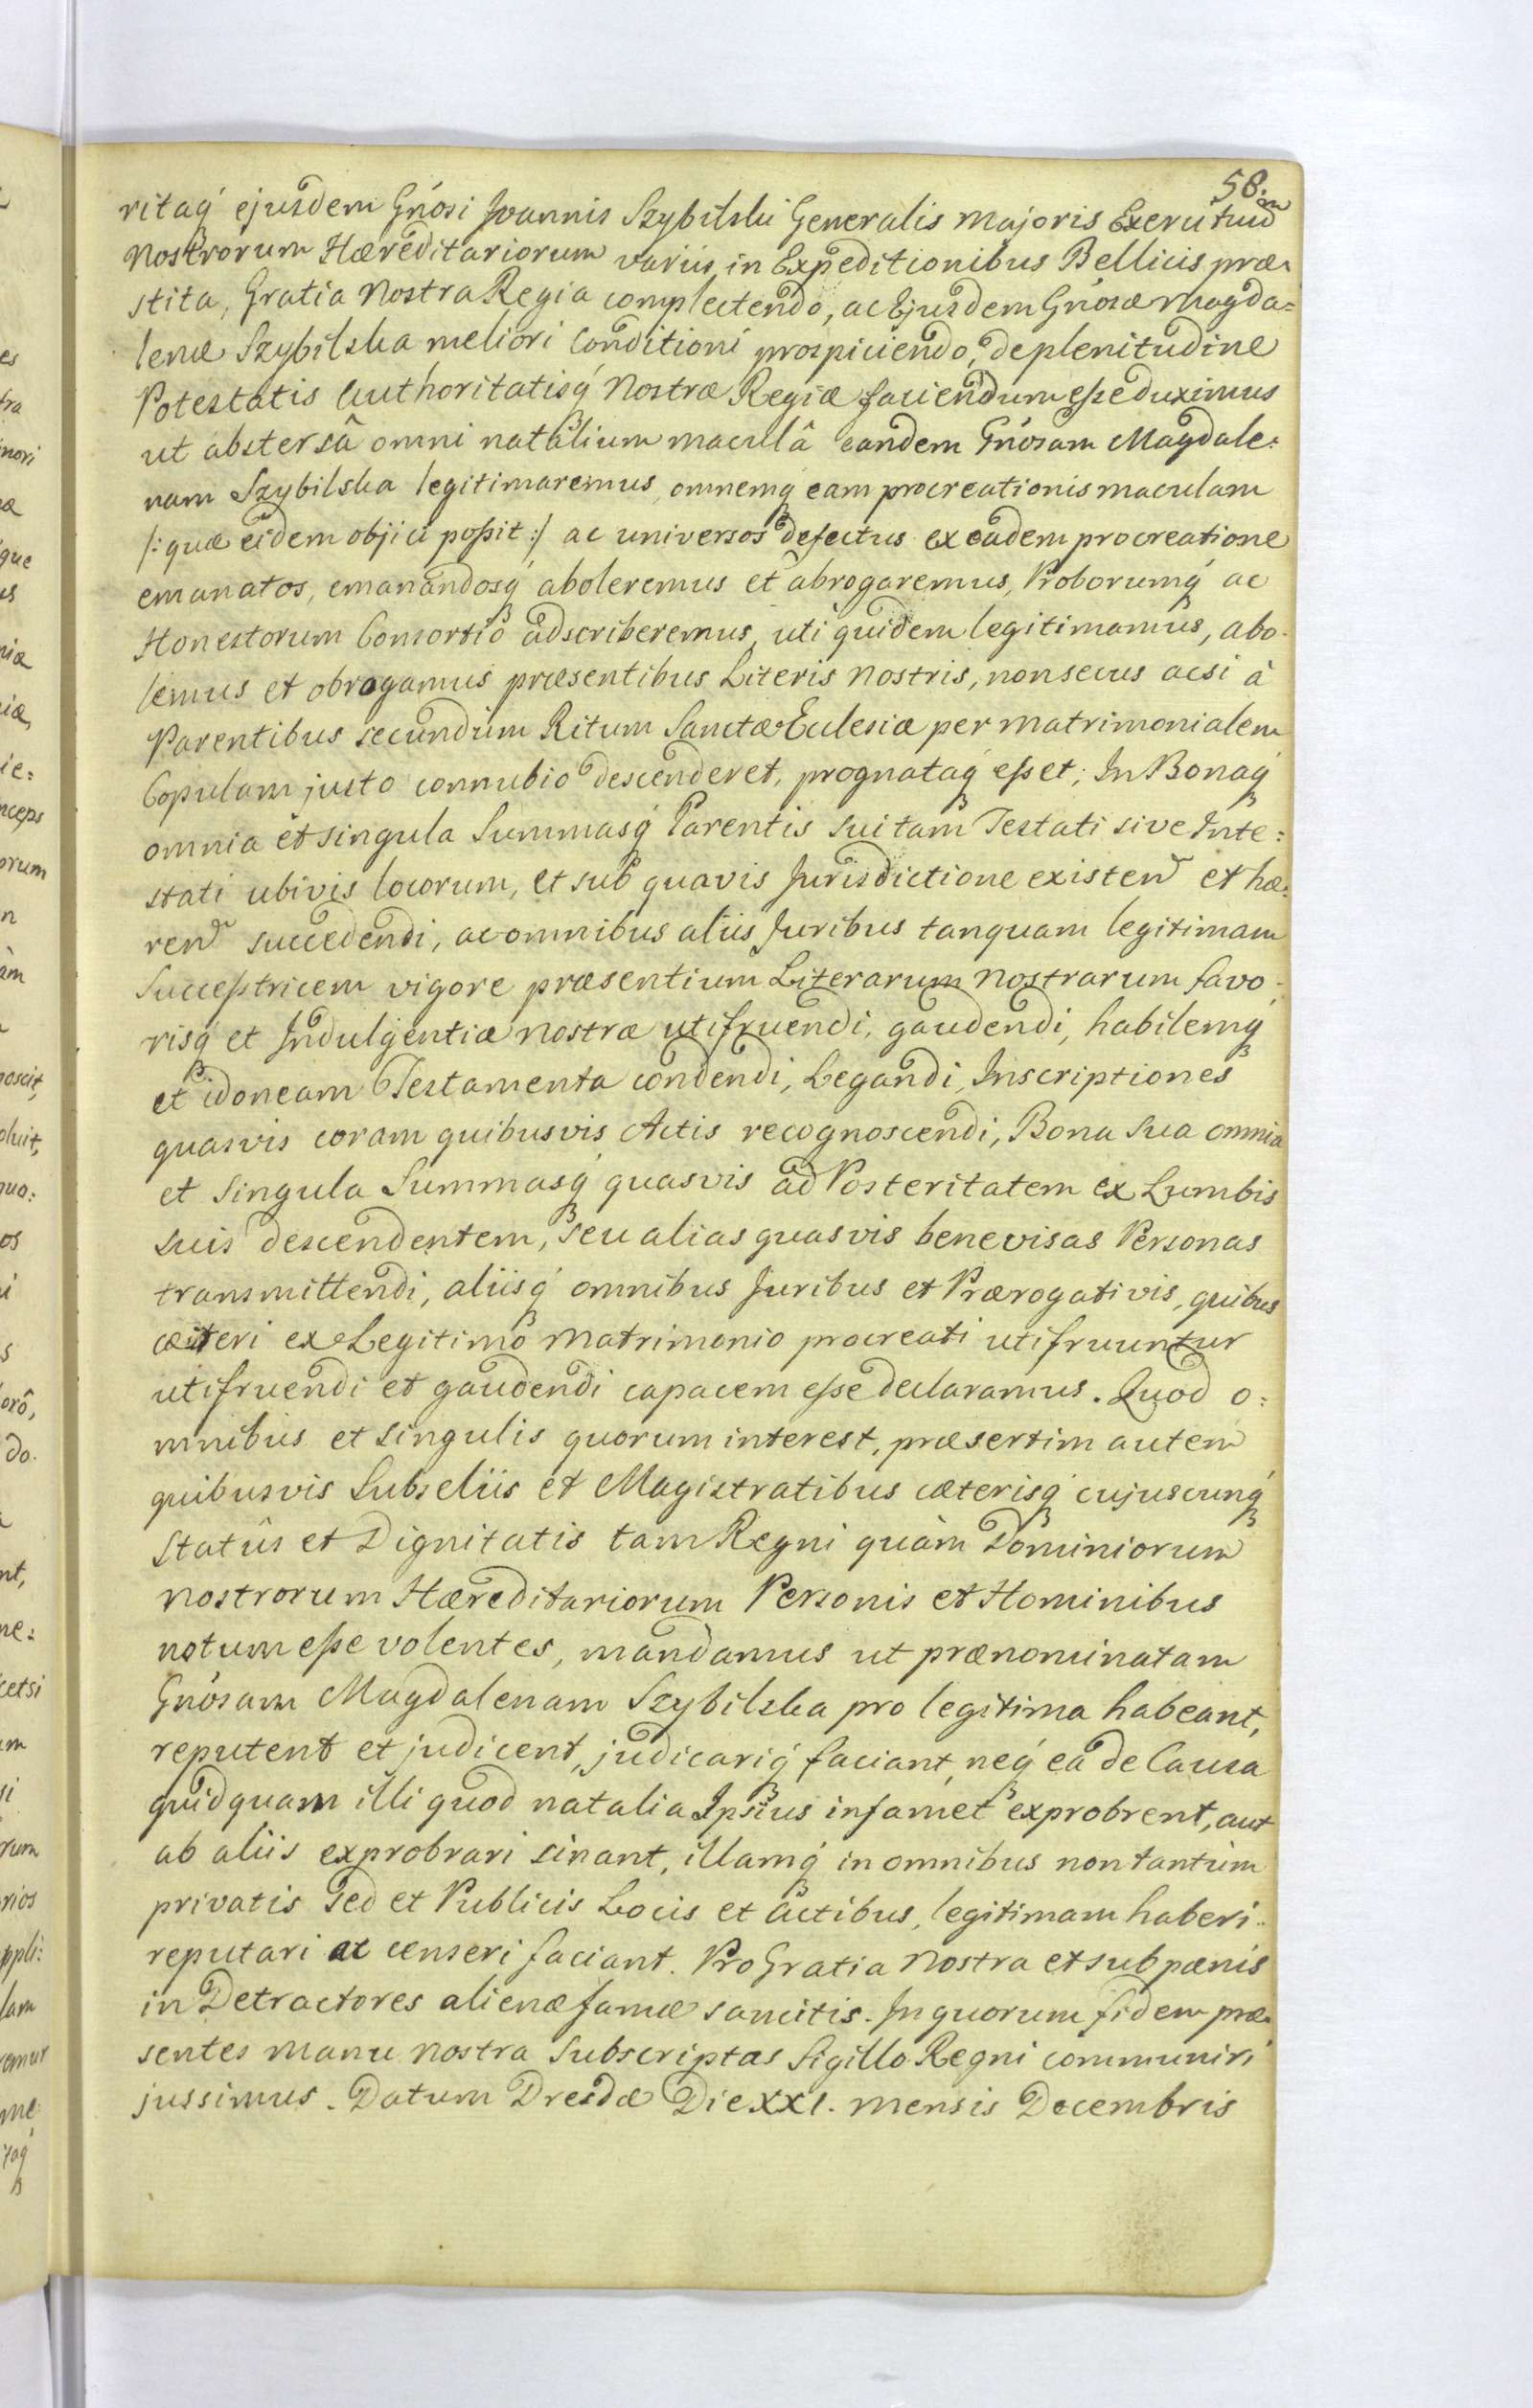 58.
ritaq́ ejusdem Gńosi Joannis Szybilski Generalis Majoris Exercituũ
Nostrorum Hæreditariorum variis in Expeditionibus Bellicis præ-
stita, Gratia Nostra Regia complectendo, ac Ejusdem Gńosæ Magda=
lenæ Szybilska meliori Conditioni prospiciendo, de plenitudine
Potestatis Authoritatisq́ Nostræ Regiæ faciendum eſse duximus
ut abstersâ omni natalium maculâ eandem Gńosam Magdale=
nam Szybilska legitimaremus, omnemq́ eam procreationis maculam
/: quæ eidem objici poſsit :/ ac universos defectus ex eadem procreatione
emanatos, emanandosq́ aboleremus et abrogaremus, Proborumq́ ac
Honestorum Consortio adscriberemus, uti quidem legitimamus, abo-
lemus et obrogamus præsentibus Literis Nostris, non secus acsi à
Parentibus secundum Ritum Sanctæ Eclesiæ per Matrimonialem
Copulam justo connubio descenderet, prognataq́ eſset; In Bonaq́
omnia et singula Summasq́ Parentis sui tam Testati sive Inte=
stati ubivis locorum, et sub quavis Jurisdictione existen̄ et hæ=
ren̄ succedendi, ac omnibus aliis Juribus tanquam legitimam
Succeſstricem vigore præsentium Literarum Nostrarum favo-
risq́ et Indulgentiæ Nostræ utifruendi, gaudendi, habilemq́
et idoneam Testamenta condendi, Legandi, Inscriptiones
quasvis coram quibusvis Actis recognoscendi, Bona sua omnia
et singula Summasq́ quasvis ad Posteritatem ex Lumbis
suis descendentem, seu alias quasvis benevisas Personas
transmittendi, aliisq́ omnibus Juribus et Prærogativis, quibus
cæteri ex Legitimo Matrimonio procreati utifruuntur
utifruendi et gaudendi capacem eſse declaramus. Quod o=
mnibus et singulis quorum interest, præsertim autem
quibusvis Subseliis et Magistratibus cæterisq́ cujuscunq́
Statûs et Dignitatis tam Regni quàm Dominiorum
Nostrorum Hæreditariorum Personis et Hominibus
notum eſse volentes, mandamus ut prænominatam
Gńosam Magdalenam Szybilska pro legitima habeant,
reputent et judicent, judicariq́ faciant, neq́ ea de Causa
quidquam illi quod natalia Ipsius infamet exprobrent, aut
ab aliis exprobrari sinant, illamq́ in omnibus non tantùm
privatis sed et Publicis Locis et Actibus, legitimam haberi.
reputari ac censeri faciant. Pro Gratia Nostra et sub pænis
in Detractores alienæ famæ sancitis. In quorum fidem præ-
sentes Manu Nostra Subscriptas Sigillo Regni communiri
jussimus. Datum Dresdæ Die XXI. Mensis Decembris